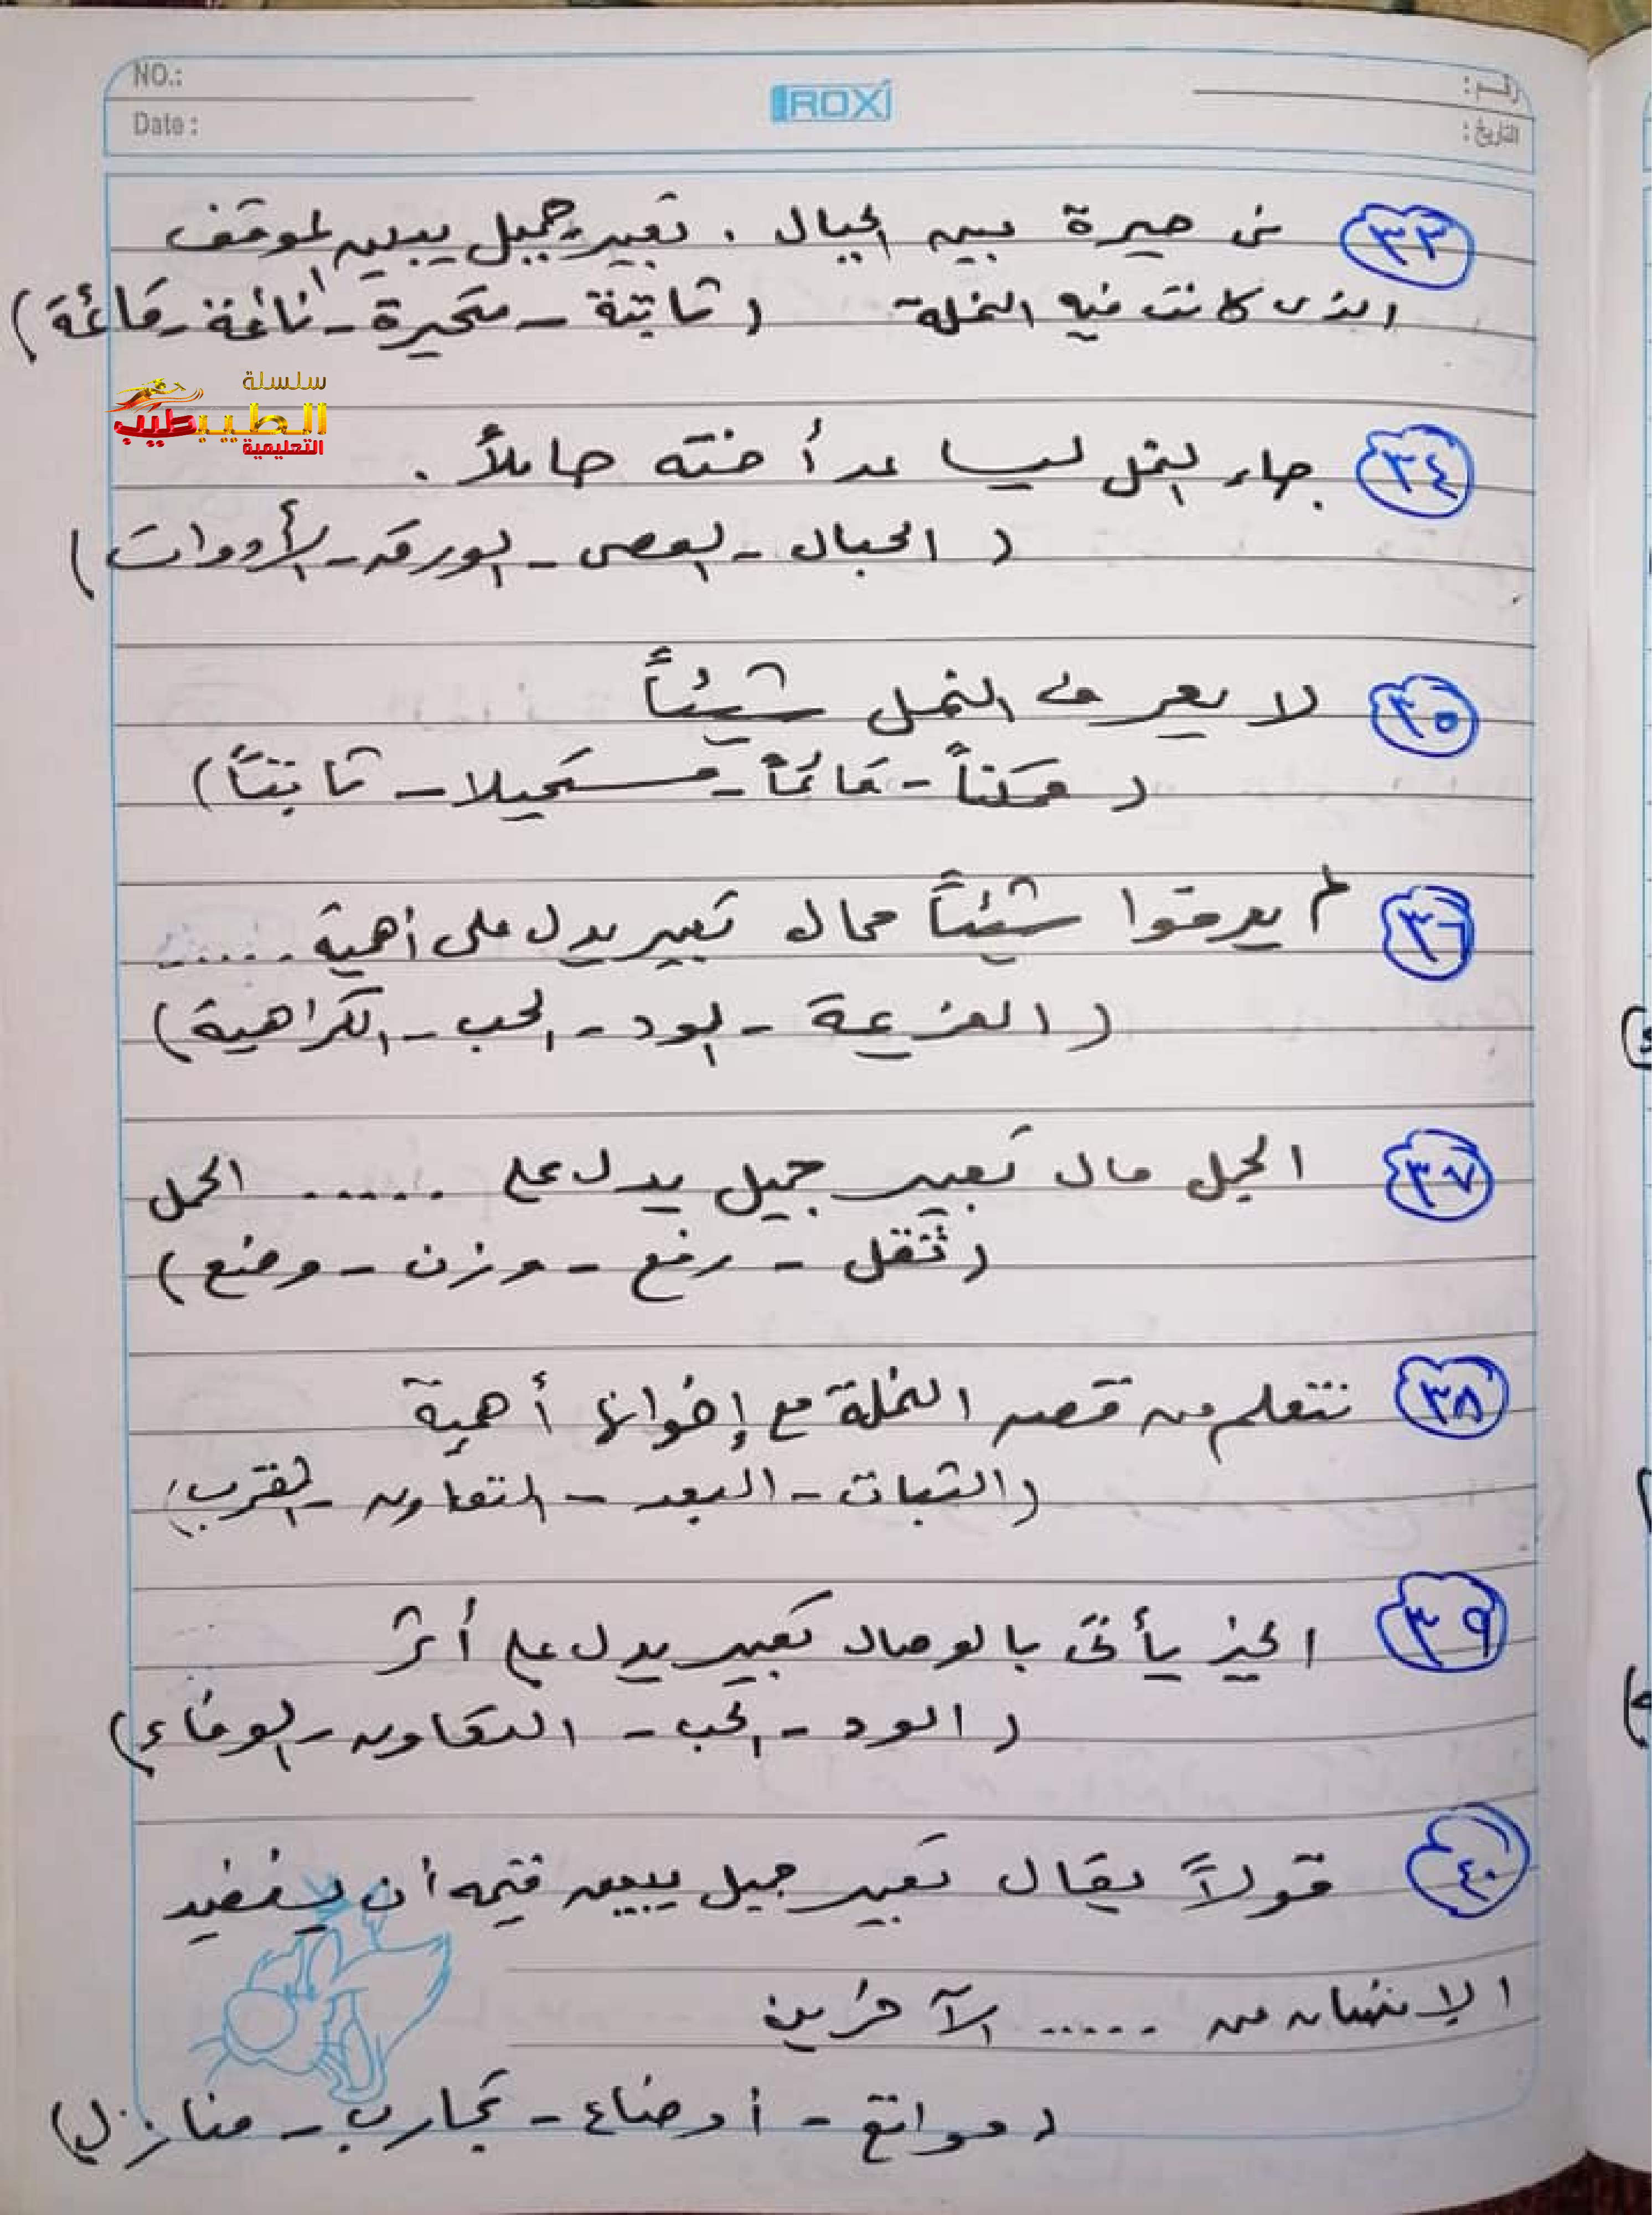 NO.:
Date :
ROXI
رقم :
التاريخ :
٣٣ فى حيرة بين الجبال . تعبير جميل يبين الموقف
الذى كانت فيه النملة ( ثابتة - متحيرة - نائمة - قائمة )
سلسلة
الطيب طيب
التعليمية
٣٤ جاء النمل ليساعد أخته حاملاً .
( الحبال - العصى - الورق - الأدوات )
٣٥ لا يعرف النمل شيئاً
( ممكناً - قائماً - مستحيلا - ثابتاً )
٣٦ لم يعرفوا شيئاً محال تعبير يدل على أهمية .....
( العزيمة - الود - الحب - الكراهية )
٣٧ الحمل مال تعبير جميل يدل على ...... الحمل
( ثقل - رفع - وزن - وضع )
٣٨ نتعلم من قصة النملة مع إخوانها أهمية
( الثبات - البعد - التعاون - القرب )
٣٩ الخير يأتى بالوصال تعبير يدل على أثر
( الود - الحب - التعاون - الوفاء )
٤٠ قولاً يقال تعبير جميل يبين قيمة أن يستفيد
الإنسان من ...... الآخرين
( مواقع - أوضاع - تجارب - منازل )